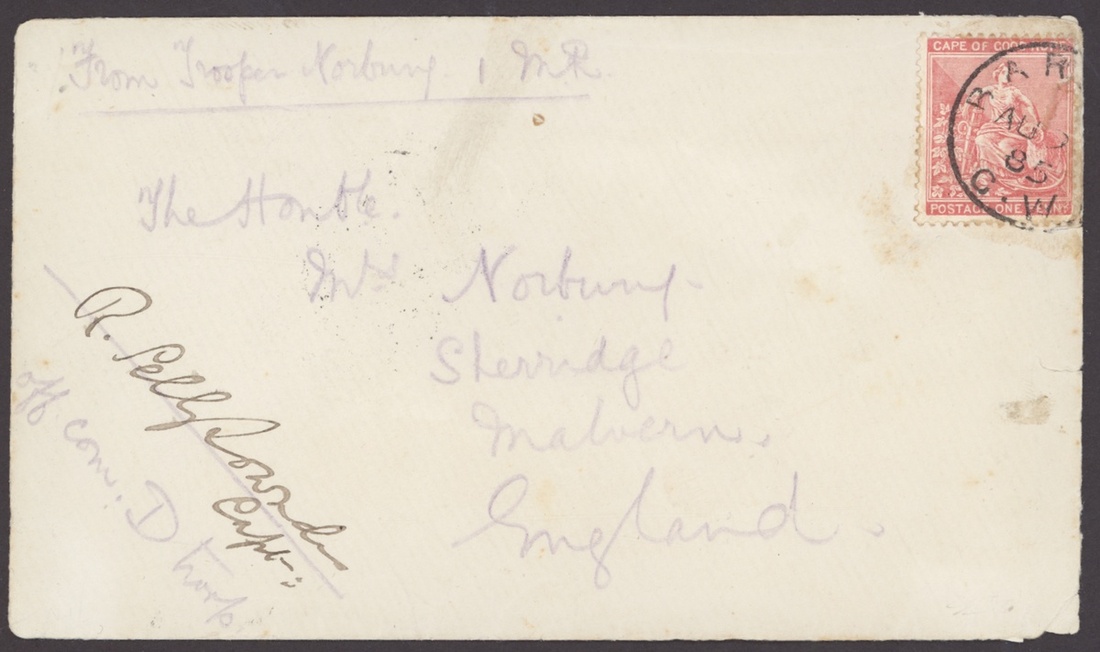 From Trooper Norbury 1 M.R.
CAPE OF GOOD HOPE
BAR
AU
85
G.W
POSTAGE ONE PENNY
The Honble.
Mrs Norbury
Sherridge
Malvern.
England.
R. Selby Lowndes
Capt:
off com. D troop